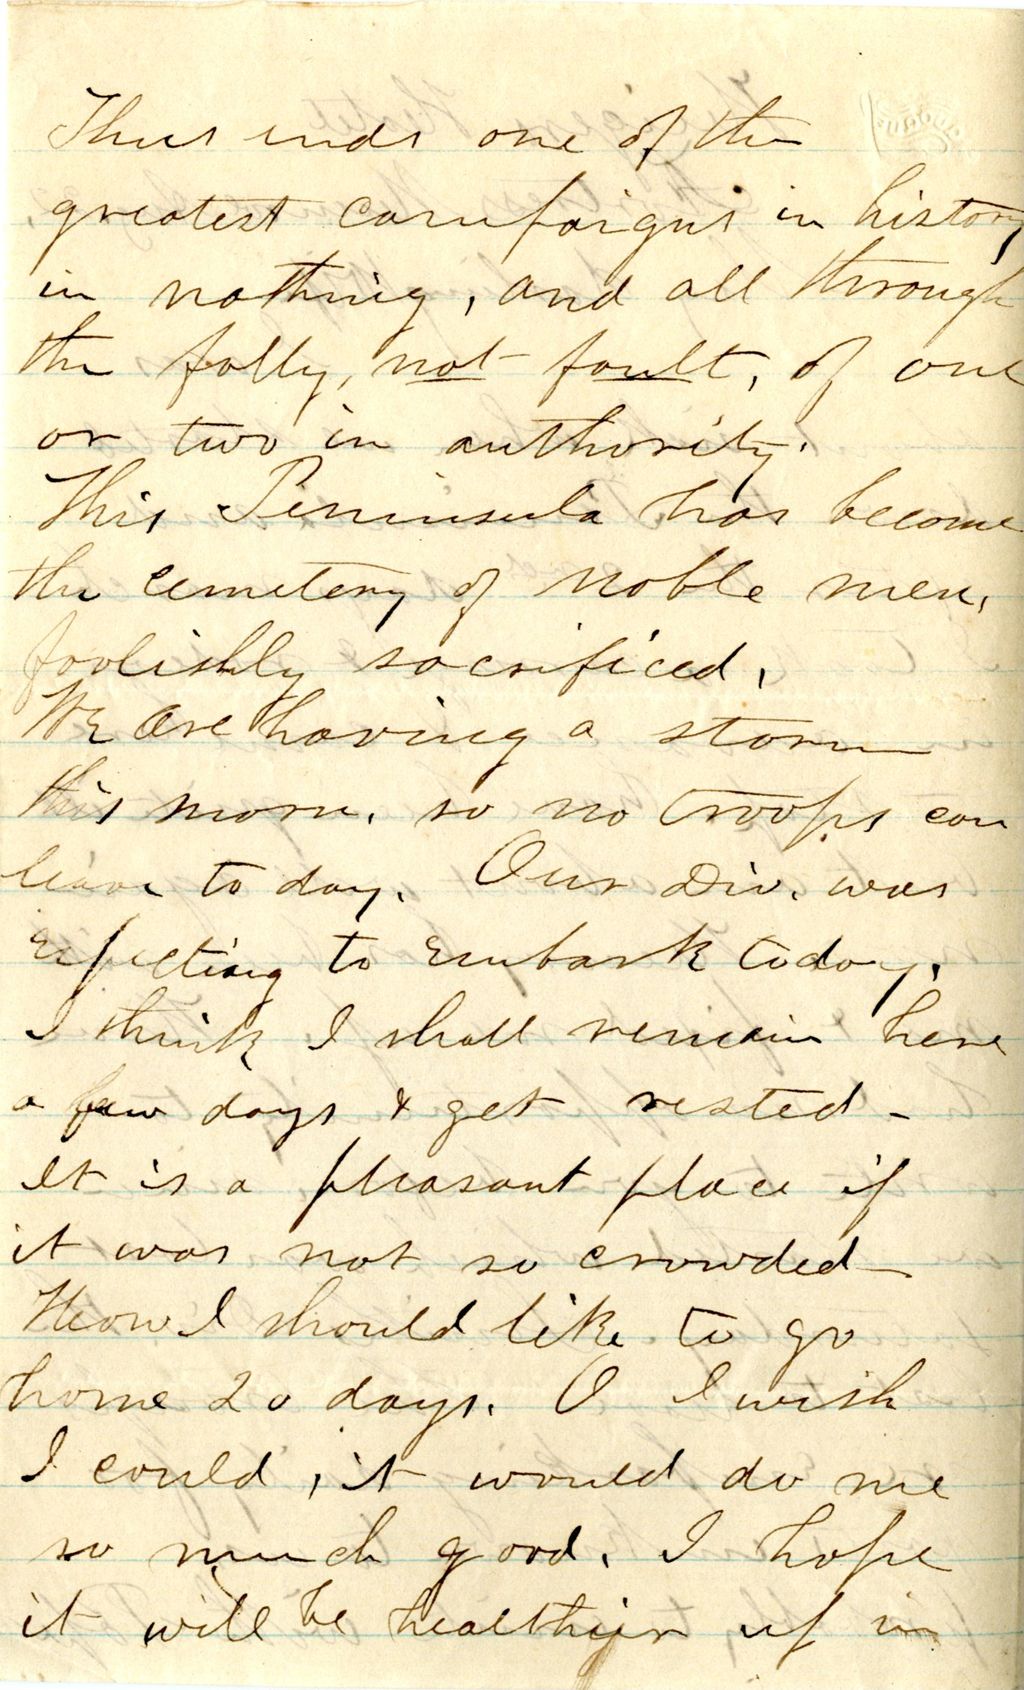 Thus ends one of the
greatest campaigns in history
in nothing, and all through
the folly, not fault, of one
or two in authority.
This Peninsula has become
the cemetery of noble men,
foolishly sacrificed.
We are having a storm
this morn. so no troops can
leave to day. Our Div. was
expecting to embark today.
I think I shall remain here
a few days & get rested -
It is a pleasant place if
it was not so crowded -
How I should like to go
home 20 days. O I wish
I could, it would do me
so much good. I hope
it will be healthier up in